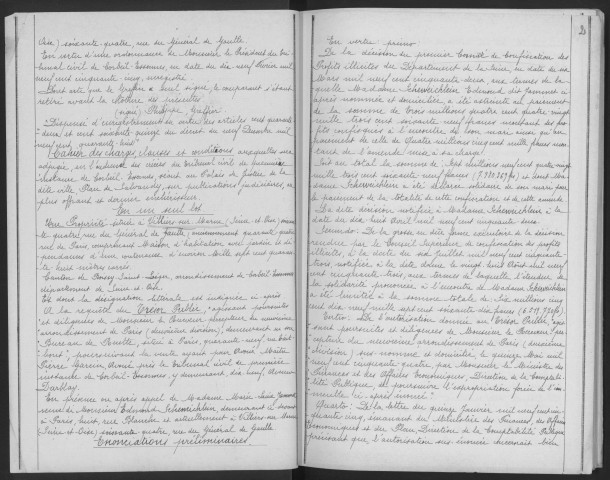 Oise) soixante-quatre, rue du Général de Gaulle
En vertu d'une ordonnance de Monsieur le Président du Tri-
bunal civil de Corbeil-Essonnes, en date du dix neuf Février mil
neuf cent cinquante cinq, enregistré
Dont acte que le Greffier a seul signé, le comparant s'étant
retiré avant la clôture des présentes
(signé)
Dispensé d'enregistrement en vertu des articles neuf quarante
deux et neuf soixante quinze du décret du neuf Décembre mil
neuf cent quarante-huit
Cahier des charges, clauses et conditions auxquelles sera
adjugé, en l'audience des criées du tribunal civil de première
instance de Corbeil-Essonnes séant au Palais de Justice de la
dite ville Place de Salvandy, sur publications judiciaires, au
plus offrant et dernier enchérisseur
En un seul lot
Une Propriété située à Villiers-sur-Marne (Seine et Oise) soixante
quatre, rue du Général de Gaulle, anciennement quarante quatre
rue de Paris comprenant Maison d'habitation avec jardin et dé-
pendances d'une contenance d'environ Mille sept cent quarante
huit mètres carrés
Canton de Boissy Saint-Léger, arrondissement de Corbeil-Essonnes
département de Seine et Oise
Et dont la désignation littérale est indiquée ci après
A la requête du Trésor Public, agissant poursuites
et diligences de Monsieur le Percepteur du neuvième
arrondissement de Paris (deuxième division), demeurant en son
Bureau de Recette, situé à Paris, quarante-neuf, rue
poursuivant la vente ayant pour Avoué Maître
Pierre Garnon, Avoué près le tribunal civil de première
instance de Corbeil-Essonnes, y demeurant dix neuf, Avenue
Darblay.
En présence ou après appel de Madame Marie-Louise
de Monsieur Edmond Scheweichlein, demeurant ci devant
à Paris, huit, rue Blanche et actuellement à Villiers-sur-Marne
(Seine-et-Oise) soixante quatre, rue du Général de Gaulle
Enonciations préliminaires
2
En vertu : primo
De la décision du premier Comité de Confiscation des
Profits Illicites du Département de la Seine, en date du six
Mars mil neuf cent cinquante deux, aux termes de la-
quelle Madame Scheweichlein Edmond dès femmes ci
après nommée et domiciliée, a été astreinte au paiement
de la somme de trois millions quatre cent quatre vingt
mille trois cent soixante neuf francs montant des pro-
fits confisqués à l'encontre de son mari ainsi qu'au
paiement de celle de Quatre millions cinq cent mille francs mon-
tant de l'amende mise à sa charge
Soit au total la somme de : Sept millions neuf cent quatre vingt
mille trois cent soixante neuf francs (7.980.369 frs) et dont Ma-
dame Scheweichlein a été déclarée solidaire de son mari pour
le paiement de la totalité de cette confiscation et de cette amende
La dite décision notifiée à Madame Scheweichlein à la
date du dix huit Avril mil neuf cent cinquante deux
Secundo : De la grosse en dûe forme exécutoire de la décision
rendue par le Conseil Supérieur de confiscation des profits
illicites à la date du six Juillet mil neuf cent cinquante-
trois, notifiée à la dite dame le vingt huit Août mil neuf
cent cinquante trois, aux termes de laquelle l'étendue de
la solidarité prononcée à l'encontre de Madame Scheweichlein
a été limitée à la somme totale de : Six millions cinq
cent dix neuf mille sept cent soixante dix francs
Tertio : De l'autorisation donnée au Trésor Public, agis-
sant poursuites et diligences de Monsieur le Percepteur
du neuvième arrondissement de Paris (deuxième
division), sus-nommé et domicilié, le quinze Mai mil
neuf cent cinquante quatre par Monsieur le Ministre des
Finances et des Affaires Economiques, Direction de la Comptabi-
lité Publique, de poursuivre l'expropriation forcée de l'im-
meuble ci-après énoncé
Quarto : De la lettre du quinze Janvier mil neuf cent cin-
quante cinq, émanant du Ministère des Finances, des Affaires
Economiques et du Plan, Direction de la Comptabilité Publique
précisant que l'autorisation sus-énoncée concernait bien